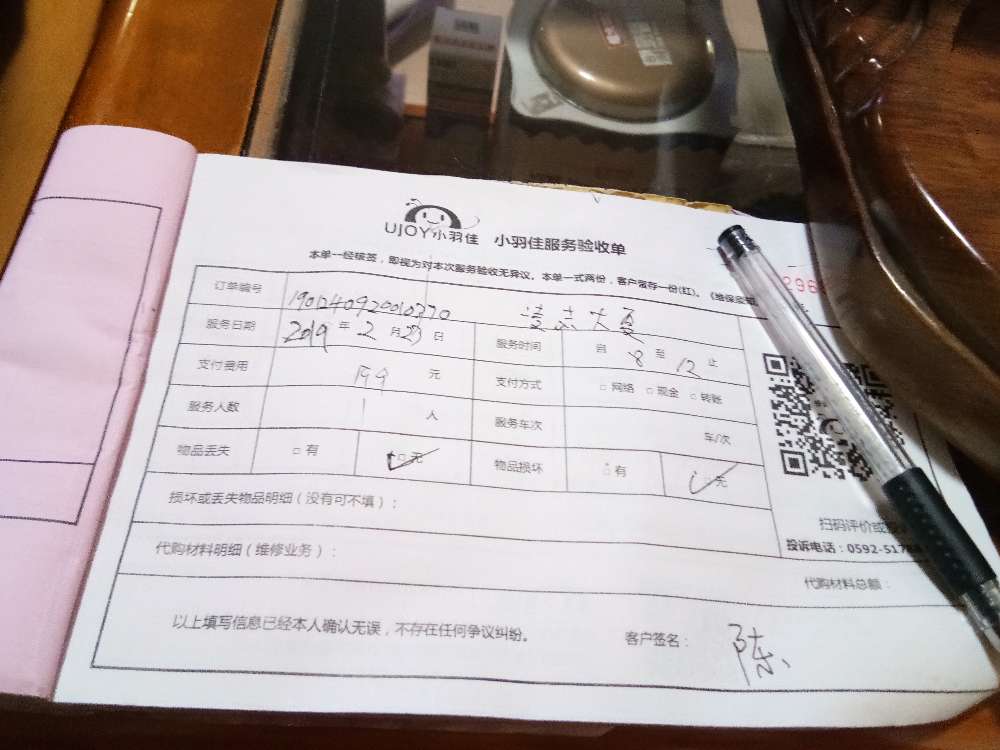 UJOY小羽佳 小羽佳服务验收单
本单一经核签，即视为对本次服务验收无异议。本单一式两份，客户留存一份(红)。
296
订单编号
服务日期 2019 年 2 月 23 日 服务时间 自 8 至 12 止
支付费用 199 元 支付方式 □ 网络 □ 现金 □ 转账
服务人数 1 人 服务车次 车/次
物品丢失 □ 有 □ 无 物品损坏 □ 有 □ 无
损坏或丢失物品明细（没有可不填）：
扫码评价或
代购材料明细（维修业务）：
投诉电话：0592-517
代购材料总额：
以上填写信息已经本人确认无误，不存在任何争议纠纷。 客户签名： 陈